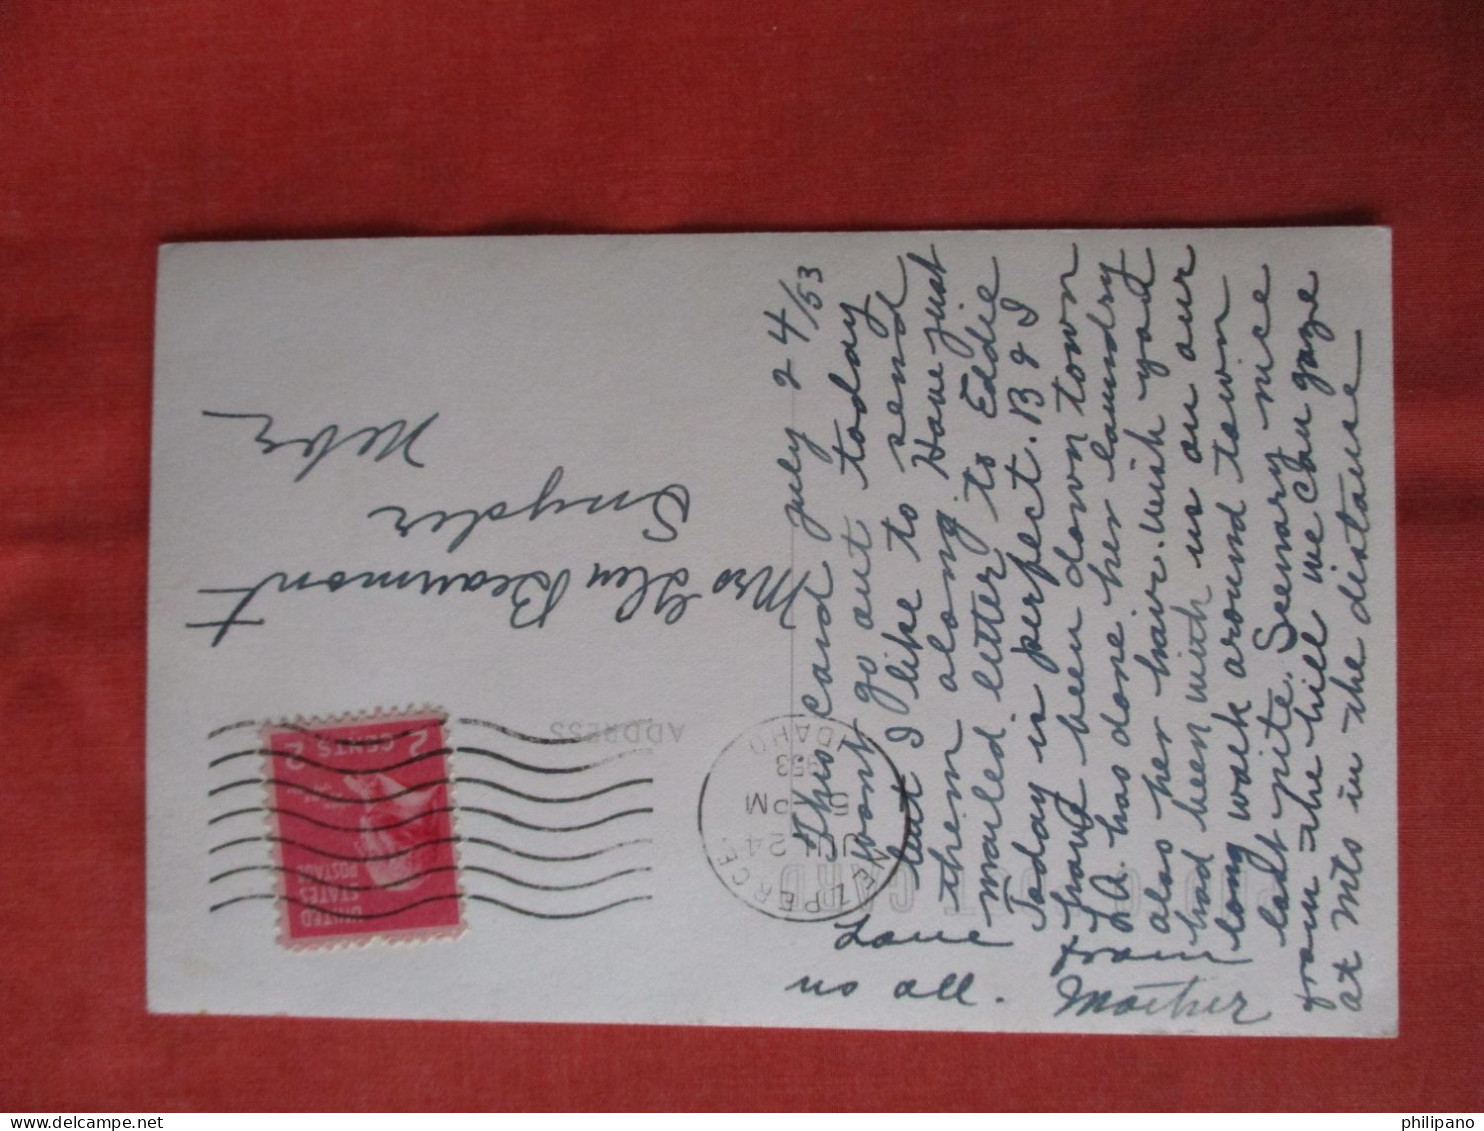 POST CARD
ADDRESS
NEZPERCE
JUL 24
5 PM
1953
IDAHO
UNITED
STATES
POSTAGE
2 CENTS 2
Mrs Glen Beaumont
Snyder
Nebr
July 24/53
This card
wont go out today
but I like to send
them along. Have just
mailed letter to Eddie
Today is perfect. B & I
have been down town
L.A. has done her laundry
also her hair. Wish you
had been with us on our
long walk around town
last nite. Scenery nice
from the hill we can gaze
at Mts in the distance
Love
from
us all.
Mother
philipano